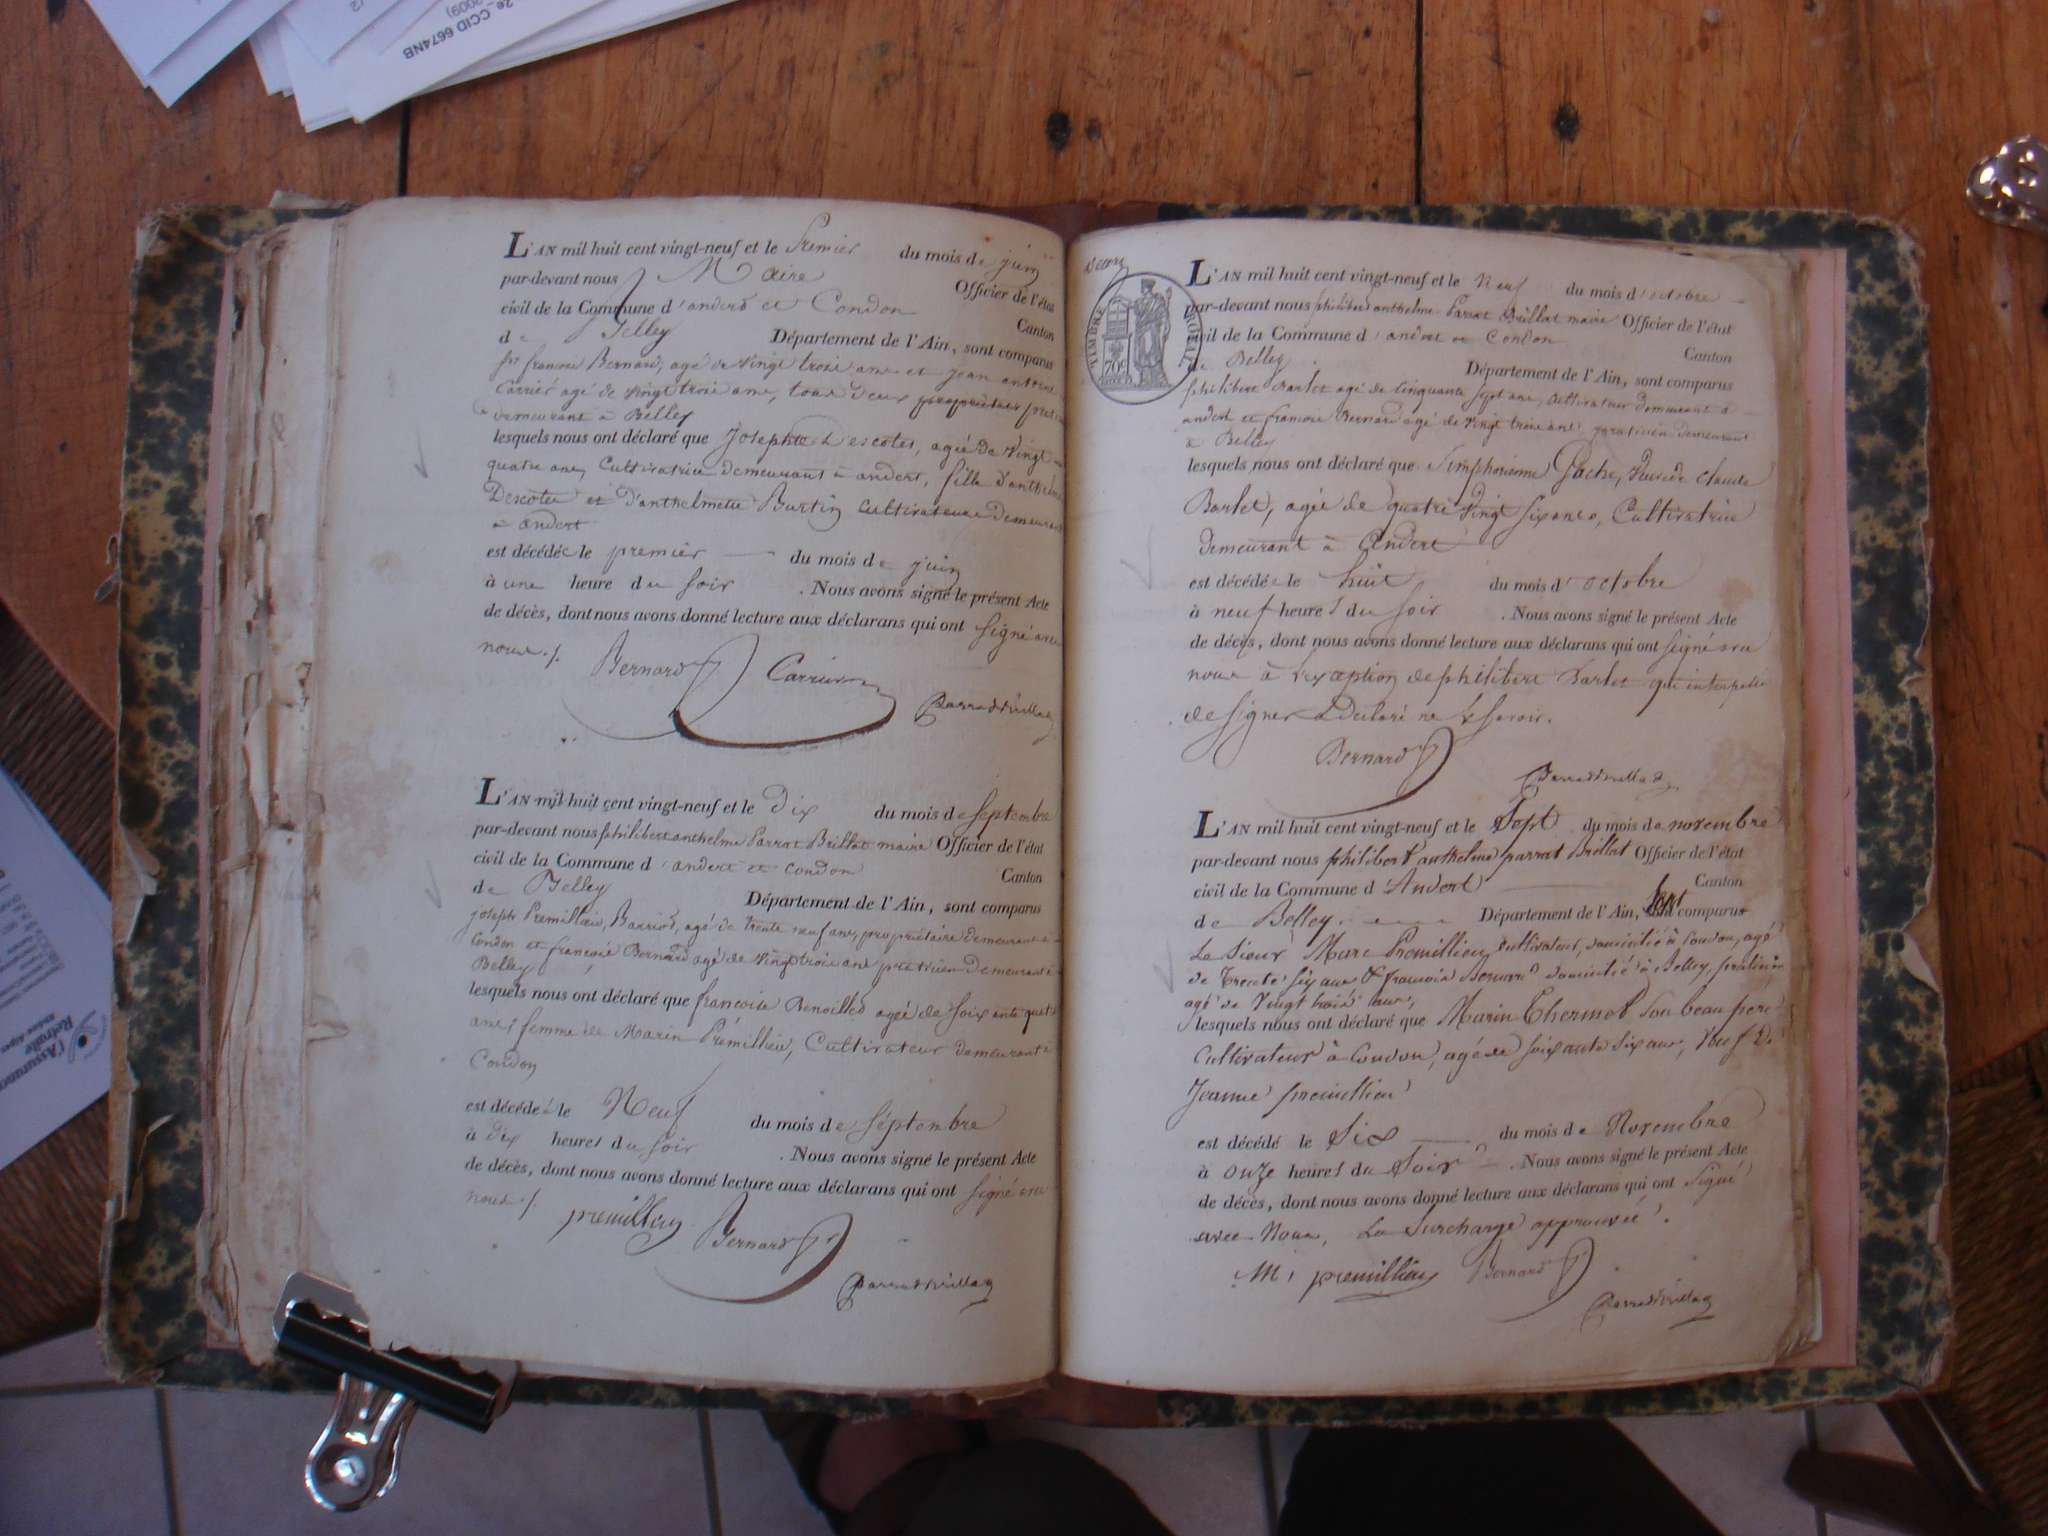 2e - CCID 6674NB
2009)
L'AN mil huit cent vingt-neuf et le Premier du mois de juin
par-devant nous Maire Officier de l'état
civil de la Commune d'andert et Condon Canton
de Belley Département de l'Ain, sont comparus
francois Bernard, agé de vingt trois ans et jean antoine
Carrier agé de vingt trois ans, tous deux
demeurant à Belley
lesquels nous ont déclaré que Josephte Descotes, agée de vingt
quatre ans, Cultivatrice demeurant à andert, fille d'anthelme
Descotes et d'anthelmette Burtin cultivateurs demeurant
à andert
est décédée le premier du mois de juin
à une heure du soir. Nous avons signé le présent Acte
de décès, dont nous avons donné lecture aux déclarans qui ont signé avec
nous ./.
Bernard Carrier
Parratbrillat
L'AN mil huit cent vingt-neuf et le Dix du mois de septembre
par-devant nous philibert anthelme Parrat Brillat maire Officier de l'état
civil de la Commune d'andert et condon Canton
de Belley Département de l'Ain, sont comparus
joseph Premillieu, agé de trente neuf ans, propriétaire demeurant à
Condon et francois Bernard agé de vingt trois ans praticien demeurant à
Belley
lesquels nous ont déclaré que francoise agée de soixante quatre
ans, femme de Marin Prémillieu, Cultivateur demeurant à
Condon
est décédée le Neuf du mois de septembre
à dix heures du soir. Nous avons signé le présent Acte
de décès, dont nous avons donné lecture aux déclarans qui ont signé avec
nous ./.
premillieu Bernard
Parratbrillat
TIMBRE ROYAL
70c
L'AN mil huit cent vingt-neuf et le Neuf du mois d'octobre
par-devant nous philibert anthelme Parrat Brillat maire Officier de l'état
civil de la Commune d'andert et condon Canton
de Belley Département de l'Ain, sont comparus
philibert Barlet agé de cinquante sept ans, cultivateur demeurant à
andert et francois Bernard agé de vingt trois ans praticien demeurant
à Belley
lesquels nous ont déclaré que Simphorienne Gache, veuve de claude
Barlet, agée de quatre vingt six ans, Cultivatrice
demeurant à Andert
est décédée le huit du mois d'octobre
à neuf heures du soir. Nous avons signé le présent Acte
de décès, dont nous avons donné lecture aux déclarans qui ont signé avec
nous à l'exception de philibert Barlet qui interpellé
de signer a déclaré ne le savoir.
Bernard
Parratbrillat
L'AN mil huit cent vingt-neuf et le Sept du mois de novembre
par-devant nous philibert anthelme parrat Brillat Officier de l'état
civil de la Commune d'Andert Canton
de Belley Département de l'Ain, sont comparus
Le Sieur Marc Premillieu, cultivateur, domicilié à Condon, agé
de trente six ans & francois Bernard domicilié à Belley, praticien
agé de vingt trois ans,
lesquels nous ont déclaré que Marin Thermet son beau pere
Cultivateur à Condon, agé de soixante six ans, veuf de
Jeanne premillieu
est décédé le Six du mois de Novembre
à onze heures du Soir. Nous avons signé le présent Acte
de décès, dont nous avons donné lecture aux déclarans qui ont Signé
avec Nous, La Surcharge approuvée.
M, premillieu Bernard
Parratbrillat
l'Assurance
Retraite